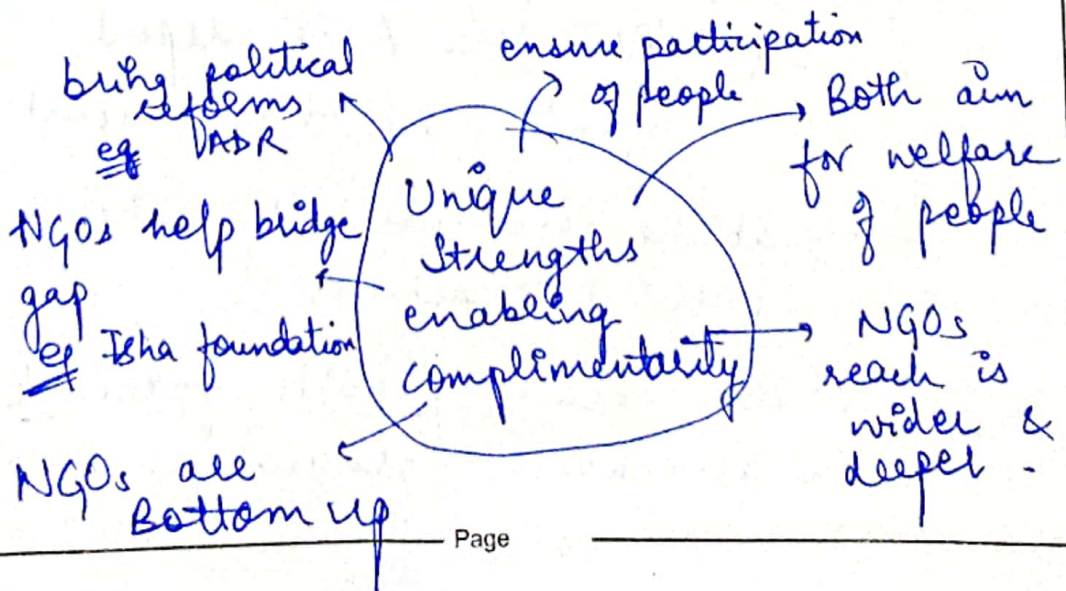 bring political
reforms
eg ADR
ensure participation
of people
Both aim
for welfare
of people
NGOs help bridge
gap
eg Isha foundation
Unique
Strengths
enabling
complimentarity
NGOs
reach is
wider &
deeper.
NGOs are
Bottom up
Page